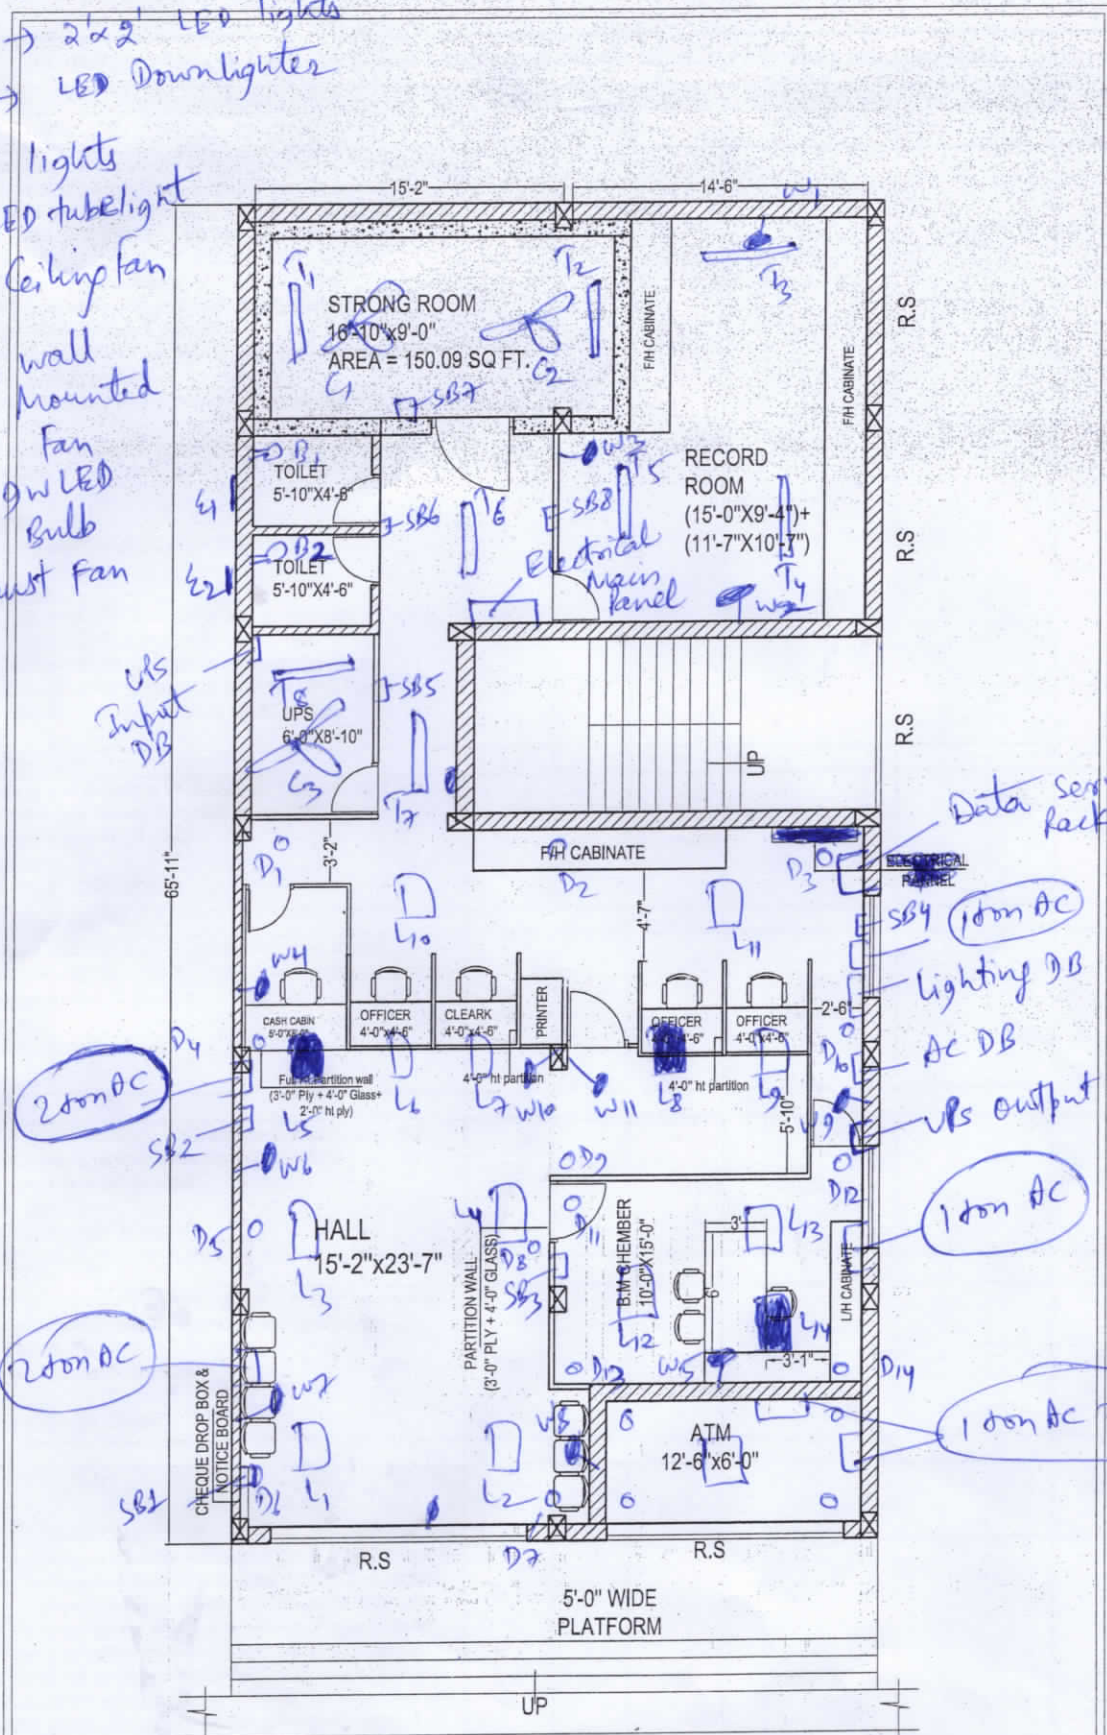 → 2'x2' LED lights
→ LED Downlighter
lights
ED tubelight
Ceiling fan
wall
Mounted
Fan
9W LED
Bulb
ust Fan
15'-2"
14'-6"
W1
T1
T2
T3
STRONG ROOM
16'-10"x9'-0"
AREA = 150.09 SQ FT.
C1
C2
SB7
F/H CABINATE
F/H CABINATE
R.S
B1
TOILET
5'-10"X4'-6"
E1
SB6
T6
SB8
T5
RECORD
ROOM
(15'-0"X9'-4")+
(11'-7"X10'-7")
R.S
B2
TOILET
5'-10"X4'-6"
E2
Electrical
Main
Panel
T4
UPS
Input
DB
T8
UPS
6'-0"X8'-10"
C3
SB5
T7
UP
R.S
65'-11"
D1
3'-2"
F/H CABINATE
D2
D3
Data Ser
Rack
ELECTRICAL
PANNEL
L10
4'-7"
L11
SB4
1 ton AC
Lighting DB
W4
CASH CABIN
OFFICER
4'-0"x4'-6"
CLEARK
4'-0"x4'-6"
PRINTER
OFFICER
OFFICER
4'-0"x4'-6"
2'-6"
D4
D10
AC DB
2 ton AC
Full ht partition wall
(3'-0" Ply + 4'-0" Glass+
2'-0" ht ply)
L5
L6
4'-0" ht partition
L7
W10
W11
L8
4'-0" ht partition
L9
5'-10"
W9
UPS output
SB2
W6
D9
D12
1 ton AC
D5
HALL
15'-2"x23'-7"
L3
L4
PARTITION WALL
(3'-0" PLY + 4'-0" GLASS)
D8
SB3
D11
B.M CHEMBER
10'-0"X15'-0"
3'
6'
L13
L/H CABINATE
L12
L14
2 ton AC
W7
D13
W15
3'-1"
D14
CHEQUE DROP BOX &
NOTICE BOARD
SB1
D6
L1
L2
W8
ATM
12'-6"x6'-0"
1 ton AC
D7
R.S
R.S
5'-0" WIDE
PLATFORM
UP